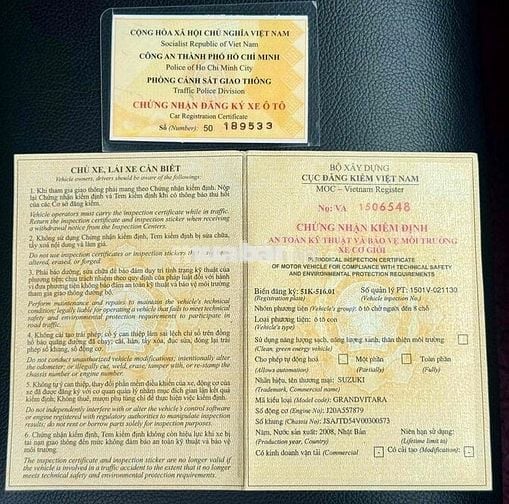 CỘNG HÒA XÃ HỘI CHỦ NGHĨA VIỆT NAM
Socialist Republic of Viet Nam
CÔNG AN THÀNH PHỐ HỒ CHÍ MINH
Police of Ho Chi Minh City
PHÒNG CẢNH SÁT GIAO THÔNG
Traffic Police Division
CHỨNG NHẬN ĐĂNG KÝ XE Ô TÔ
Car Registration Certificate
Số (Number): 50 189533
CHỦ XE, LÁI XE CẦN BIẾT
Vehicle owners, drivers should be aware of the followings:
1. Khi tham gia giao thông phải mang theo Chứng nhận kiểm định. Nộp
lại Chứng nhận kiểm định và Tem kiểm định khi có thông báo thu hồi
của các Cơ sở đăng kiểm.
Vehicle operators must carry the inspection certificate while in traffic.
Return the inspection certificate and inspection sticker when receiving
a withdrawal notice from the Inspection Centers.
2. Không sử dụng Chứng nhận kiểm định, Tem kiểm định bị sửa chữa,
tẩy xoá nội dung và làm giả.
Do not use inspection certificates or inspection stickers that are
altered, erased, or forged.
3. Phải bảo dưỡng, sửa chữa để bảo đảm duy trì tình trạng kỹ thuật của
phương tiện; chịu trách nhiệm theo quy định của pháp luật đối với hành
vi đưa phương tiện không bảo đảm an toàn kỹ thuật và bảo vệ môi trường
tham gia giao thông đường bộ.
Perform maintenance and repairs to maintain the vehicle's technical
condition; legally liable for operating a vehicle that fails to meet technical
safety and environmental protection requirements to participate in
road traffic.
4. Không cải tạo trái phép; cố ý can thiệp làm sai lệch chỉ số trên đồng
hồ báo quãng đường đã chạy; cắt, hàn, tẩy xóa, đục sửa, đóng lại trái
phép số khung, số động cơ.
Do not conduct unauthorized vehicle modifications; intentionally alter
the odometer; or illegally cut, weld, erase, tamper with, or re-stamp the
chassis number or engine number.
5. Không tự ý can thiệp, thay đổi phần mềm điều khiển của xe, động cơ
đã được đăng ký với cơ quan quản lý nhằm mục đích gian lận kết quả
kiểm định; Không thuê, mượn phụ tùng chỉ để đối phó khi kiểm định.
Do not independently interfere with or alter the vehicle's control software
or engine registered with regulatory authorities to manipulate inspection
results; do not rent or borrow parts solely for inspection purposes.
6. Chứng nhận kiểm định, Tem kiểm định không còn hiệu lực khi xe bị
tai nạn giao thông đến mức không đảm bảo an toàn kỹ thuật và bảo vệ
môi trường.
The inspection certificate and inspection sticker are no longer valid if
the vehicle is involved in a traffic accident to the extent that it no longer
meets technical safety and environmental requirements.
BỘ XÂY DỰNG
CỤC ĐĂNG KIỂM VIỆT NAM
MOC – Vietnam Register
No: VA 1506548
CHỨNG NHẬN KIỂM ĐỊNH
AN TOÀN KỸ THUẬT VÀ BẢO VỆ MÔI TRƯỜNG
XE CƠ GIỚI
PERIODICAL INSPECTION CERTIFICATE
OF MOTOR VEHICLE FOR COMPLIANCE WITH TECHNICAL SAFETY
AND ENVIRONMENTAL PROTECTION REQUIREMENTS
Biển đăng ký: 51K-516.01 Số quản lý PT: 1501V-021130
(Registration plate) (Vehicle inpection No.)
Nhóm phương tiện (Vehicle's group): ô tô chở người đến 8 chỗ
Loại phương tiện: ô tô con
(Vehicle's type)
Sử dụng năng lượng sạch, năng lượng xanh, thân thiện môi trường
(Clean, green energy vehicle)
Cho phép tự động hoá Một phần Toàn phần
(Allows automation) (Partially) (Fully)
Nhãn hiệu, tên thương mại: SUZUKI
(Trademark, Commercial name)
Mã kiểu loại (Model code): GRANDVITARA
Số động cơ (Engine No): J20A557879
Số khung (Chassis No): JSAJTD54V00300573
Năm, Nước sản xuất: 2008, Nhật Bản Niên hạn sử dụng:
(Production year, Country) (Lifetime limit to)
Có kinh doanh vận tải (Commercial) Có cải tạo (Modification):